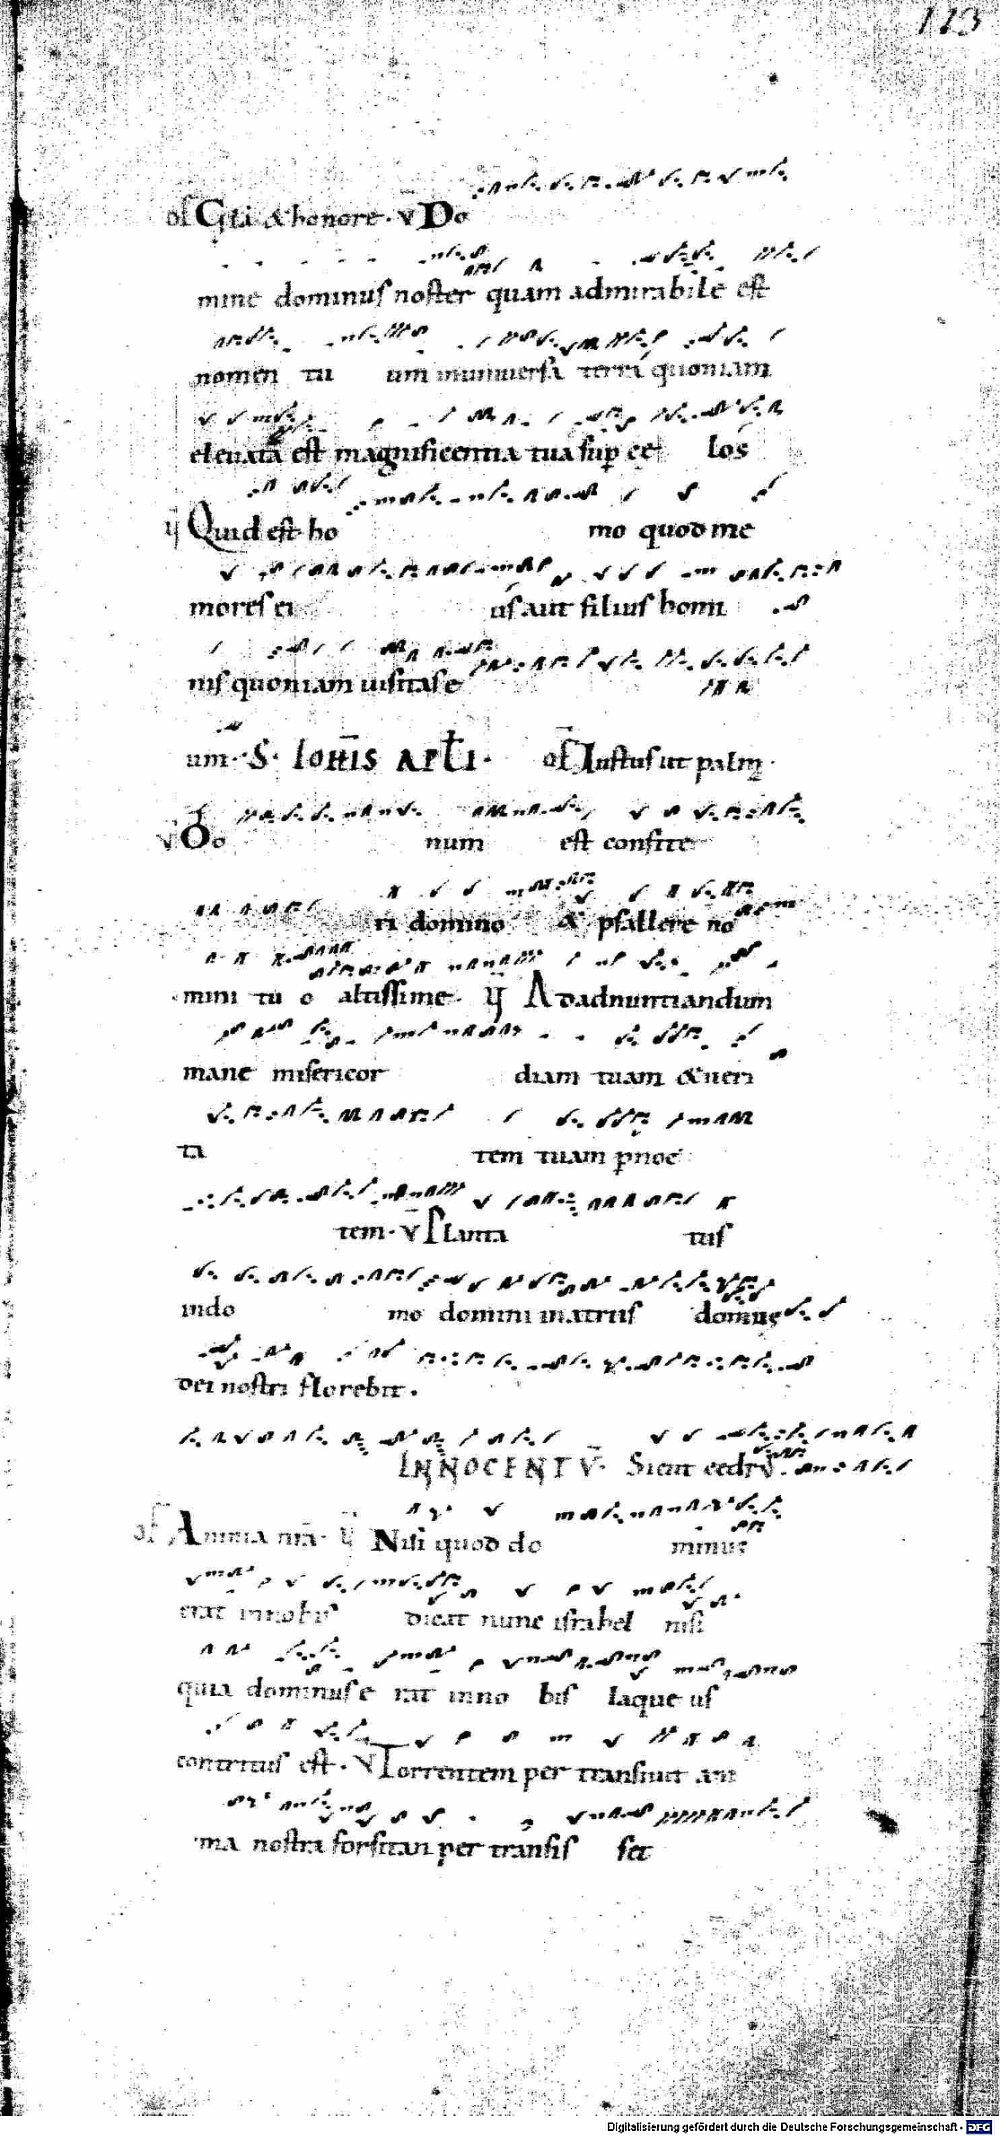 113
of Głi & honore · v̄ Do
mine dominus noster quam admirabile est
nomen tu um in universa terra quoniam
elevata est magnificentia tua sup ce los
ij Quid est ho mo quod me
mores ei us aut filius homi
nis quoniam visitas e
um · S · IOHĪS APLI · of Iustus ut palm ·
v̄ Bo num est confite
ri domino & psallere no
mini tu o altissime · ij Ad adnuntiandum
mane misericor diam tuam & veri
ta tem tuam p noc
tem · v̄ Planta tus
in do mo domini in atriis domus
dei nostri florebit ·
INNOCENT V̄ · Sicut cedrꝰ
of Anima nrā · ij Nisi quod do minus
erat in nobis dicat nunc israhel nisi
quia dominus e rat in no bis laque us
contritus est · v̄ Torrentem per transivit ani
ma nostra forsitan per transis set
Digitalisierung gefördert durch die Deutsche Forschungsgemeinschaft - DFG